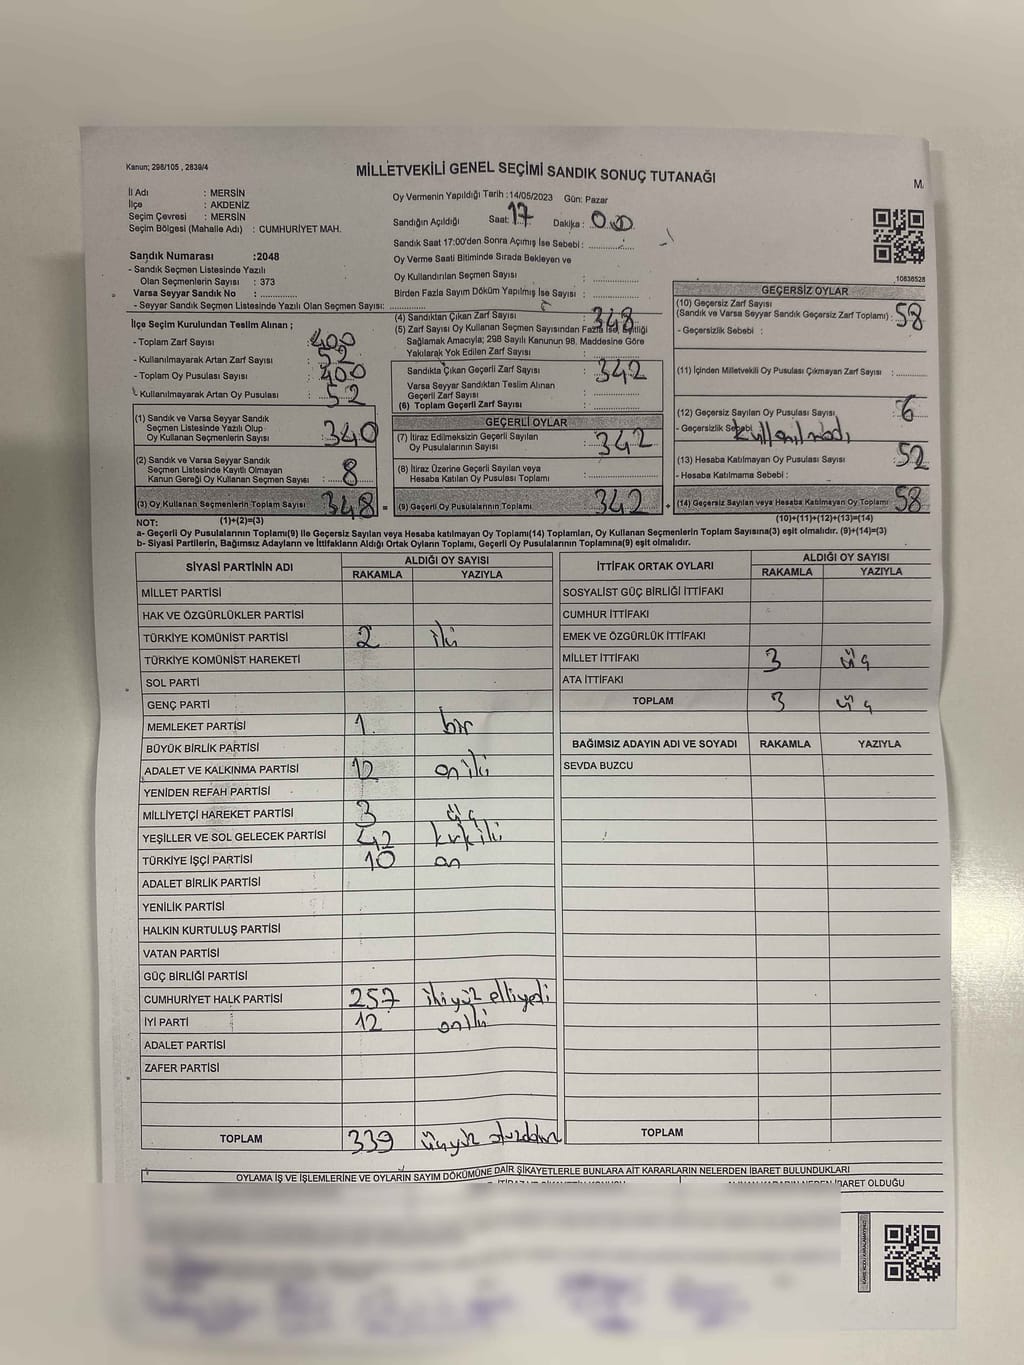 Kanun; 298/105 , 2839/4
MİLLETVEKİLİ GENEL SEÇİMİ SANDIK SONUÇ TUTANAĞI
M.
İl Adı : MERSİN
İlçe : AKDENİZ
Seçim Çevresi : MERSİN
Seçim Bölgesi (Mahalle Adı) : CUMHURİYET MAH.
Oy Vermenin Yapıldığı Tarih : 14/05/2023 Gün: Pazar
Sandığın Açıldığı Saat: 17 Dakika : 00
Sandık Saat 17:00'den Sonra Açımış İse Sebebi :
Oy Verme Saati Bitiminde Sırada Bekleyen ve
Oy Kullandırılan Seçmen Sayısı :
Birden Fazla Sayım Döküm Yapılmış İse Sayısı :
Sandık Numarası :2048
- Sandık Seçmen Listesinde Yazılı
Olan Seçmenlerin Sayısı : 373
Varsa Seyyar Sandık No :
- Seyyar Sandık Seçmen Listesinde Yazılı Olan Seçmen Sayısı:
10836528
İlçe Seçim Kurulundan Teslim Alınan ;
- Toplam Zarf Sayısı : 400
- Kullanılmayarak Artan Zarf Sayısı : 52
- Toplam Oy Pusulası Sayısı : 400
- Kullanılmayarak Artan Oy Pusulası : 52
(1) Sandık ve Varsa Seyyar Sandık
Seçmen Listesinde Yazılı Olup
Oy Kullanan Seçmenlerin Sayısı : 340
(2) Sandık ve Varsa Seyyar Sandık
Seçmen Listesinde Kayıtlı Olmayan
Kanun Gereği Oy Kullanan Seçmen Sayısı : 8
(3) Oy Kullanan Seçmenlerin Toplam Sayısı : 348 =
(1)+(2)=(3)
(4) Sandıktan Çıkan Zarf Sayısı : 348
(5) Zarf Sayısı Oy Kullanan Seçmen Sayısından Fazla İse, Eşitliği
Sağlamak Amacıyla; 298 Sayılı Kanunun 98. Maddesine Göre
Yakılarak Yok Edilen Zarf Sayısı :
Sandıkta Çıkan Geçerli Zarf Sayısı : 342
Varsa Seyyar Sandıktan Teslim Alınan
Geçerli Zarf Sayısı :
(6) Toplam Geçerli Zarf Sayısı :
GEÇERLİ OYLAR
(7) İtiraz Edilmeksizin Geçerli Sayılan
Oy Pusulalarının Sayısı : 342
(8) İtiraz Üzerine Geçerli Sayılan veya
Hesaba Katılan Oy Pusulası Toplamı :
(9) Geçerli Oy Pusulalarının Toplamı : 342 +
GEÇERSİZ OYLAR
(10) Geçersiz Zarf Sayısı
(Sandık ve Varsa Seyyar Sandık Geçersiz Zarf Toplamı) : 58
- Geçersizlik Sebebi :
(11) İçinden Milletvekili Oy Pusulası Çıkmayan Zarf Sayısı :
(12) Geçersiz Sayılan Oy Pusulası Sayısı : 6
- Geçersizlik Sebebi : kullanılmadı
(13) Hesaba Katılmayan Oy Pusulası Sayısı : 52
- Hesaba Katılmama Sebebi :
(14) Geçersiz Sayılan veya Hesaba Katılmayan Oy Toplamı : 58
(10)+(11)+(12)+(13)=(14)
NOT:
a- Geçerli Oy Pusulalarının Toplamı(9) ile Geçersiz Sayılan veya Hesaba katılmayan Oy Toplamı(14) Toplamları, Oy Kullanan Seçmenlerin Toplam Sayısına(3) eşit olmalıdır. (9)+(14)=(3)
b- Siyasi Partilerin, Bağımsız Adayların ve İttifakların Aldığı Ortak Oyların Toplamı, Geçerli Oy Pusulalarının Toplamına(9) eşit olmalıdır.
SİYASİ PARTİNİN ADI ALDIĞI OY SAYISI
RAKAMLA YAZIYLA
MİLLET PARTİSİ
HAK VE ÖZGÜRLÜKLER PARTİSİ
TÜRKİYE KOMÜNİST PARTİSİ 2 iki
TÜRKİYE KOMÜNİST HAREKETİ
SOL PARTİ
GENÇ PARTİ
MEMLEKET PARTİSİ 1 bir
BÜYÜK BİRLİK PARTİSİ
ADALET VE KALKINMA PARTİSİ 12 oniki
YENİDEN REFAH PARTİSİ
MİLLİYETÇİ HAREKET PARTİSİ 3 üç
YEŞİLLER VE SOL GELECEK PARTİSİ 42 kırkiki
TÜRKİYE İŞÇİ PARTİSİ 10 on
ADALET BİRLİK PARTİSİ
YENİLİK PARTİSİ
HALKIN KURTULUŞ PARTİSİ
VATAN PARTİSİ
GÜÇ BİRLİĞİ PARTİSİ
CUMHURİYET HALK PARTİSİ 257 ikiyüz elliyedi
İYİ PARTİ 12 oniki
ADALET PARTİSİ
ZAFER PARTİSİ
TOPLAM 339 üçyüz
İTTİFAK ORTAK OYLARI ALDIĞI OY SAYISI
RAKAMLA YAZIYLA
SOSYALİST GÜÇ BİRLİĞİ İTTİFAKI
CUMHUR İTTİFAKI
EMEK VE ÖZGÜRLÜK İTTİFAKI
MİLLET İTTİFAKI 3 üç
ATA İTTİFAKI
TOPLAM 3 üç
BAĞIMSIZ ADAYIN ADI VE SOYADI RAKAMLA YAZIYLA
SEVDA BUZCU
TOPLAM
OYLAMA İŞ VE İŞLEMLERİNE VE OYLARIN SAYIM DÖKÜMÜNE DAİR ŞİKAYETLERLE BUNLARA AİT KARARLARIN NELERDEN İBARET BULUNDUKLARI
İBARET OLDUĞU